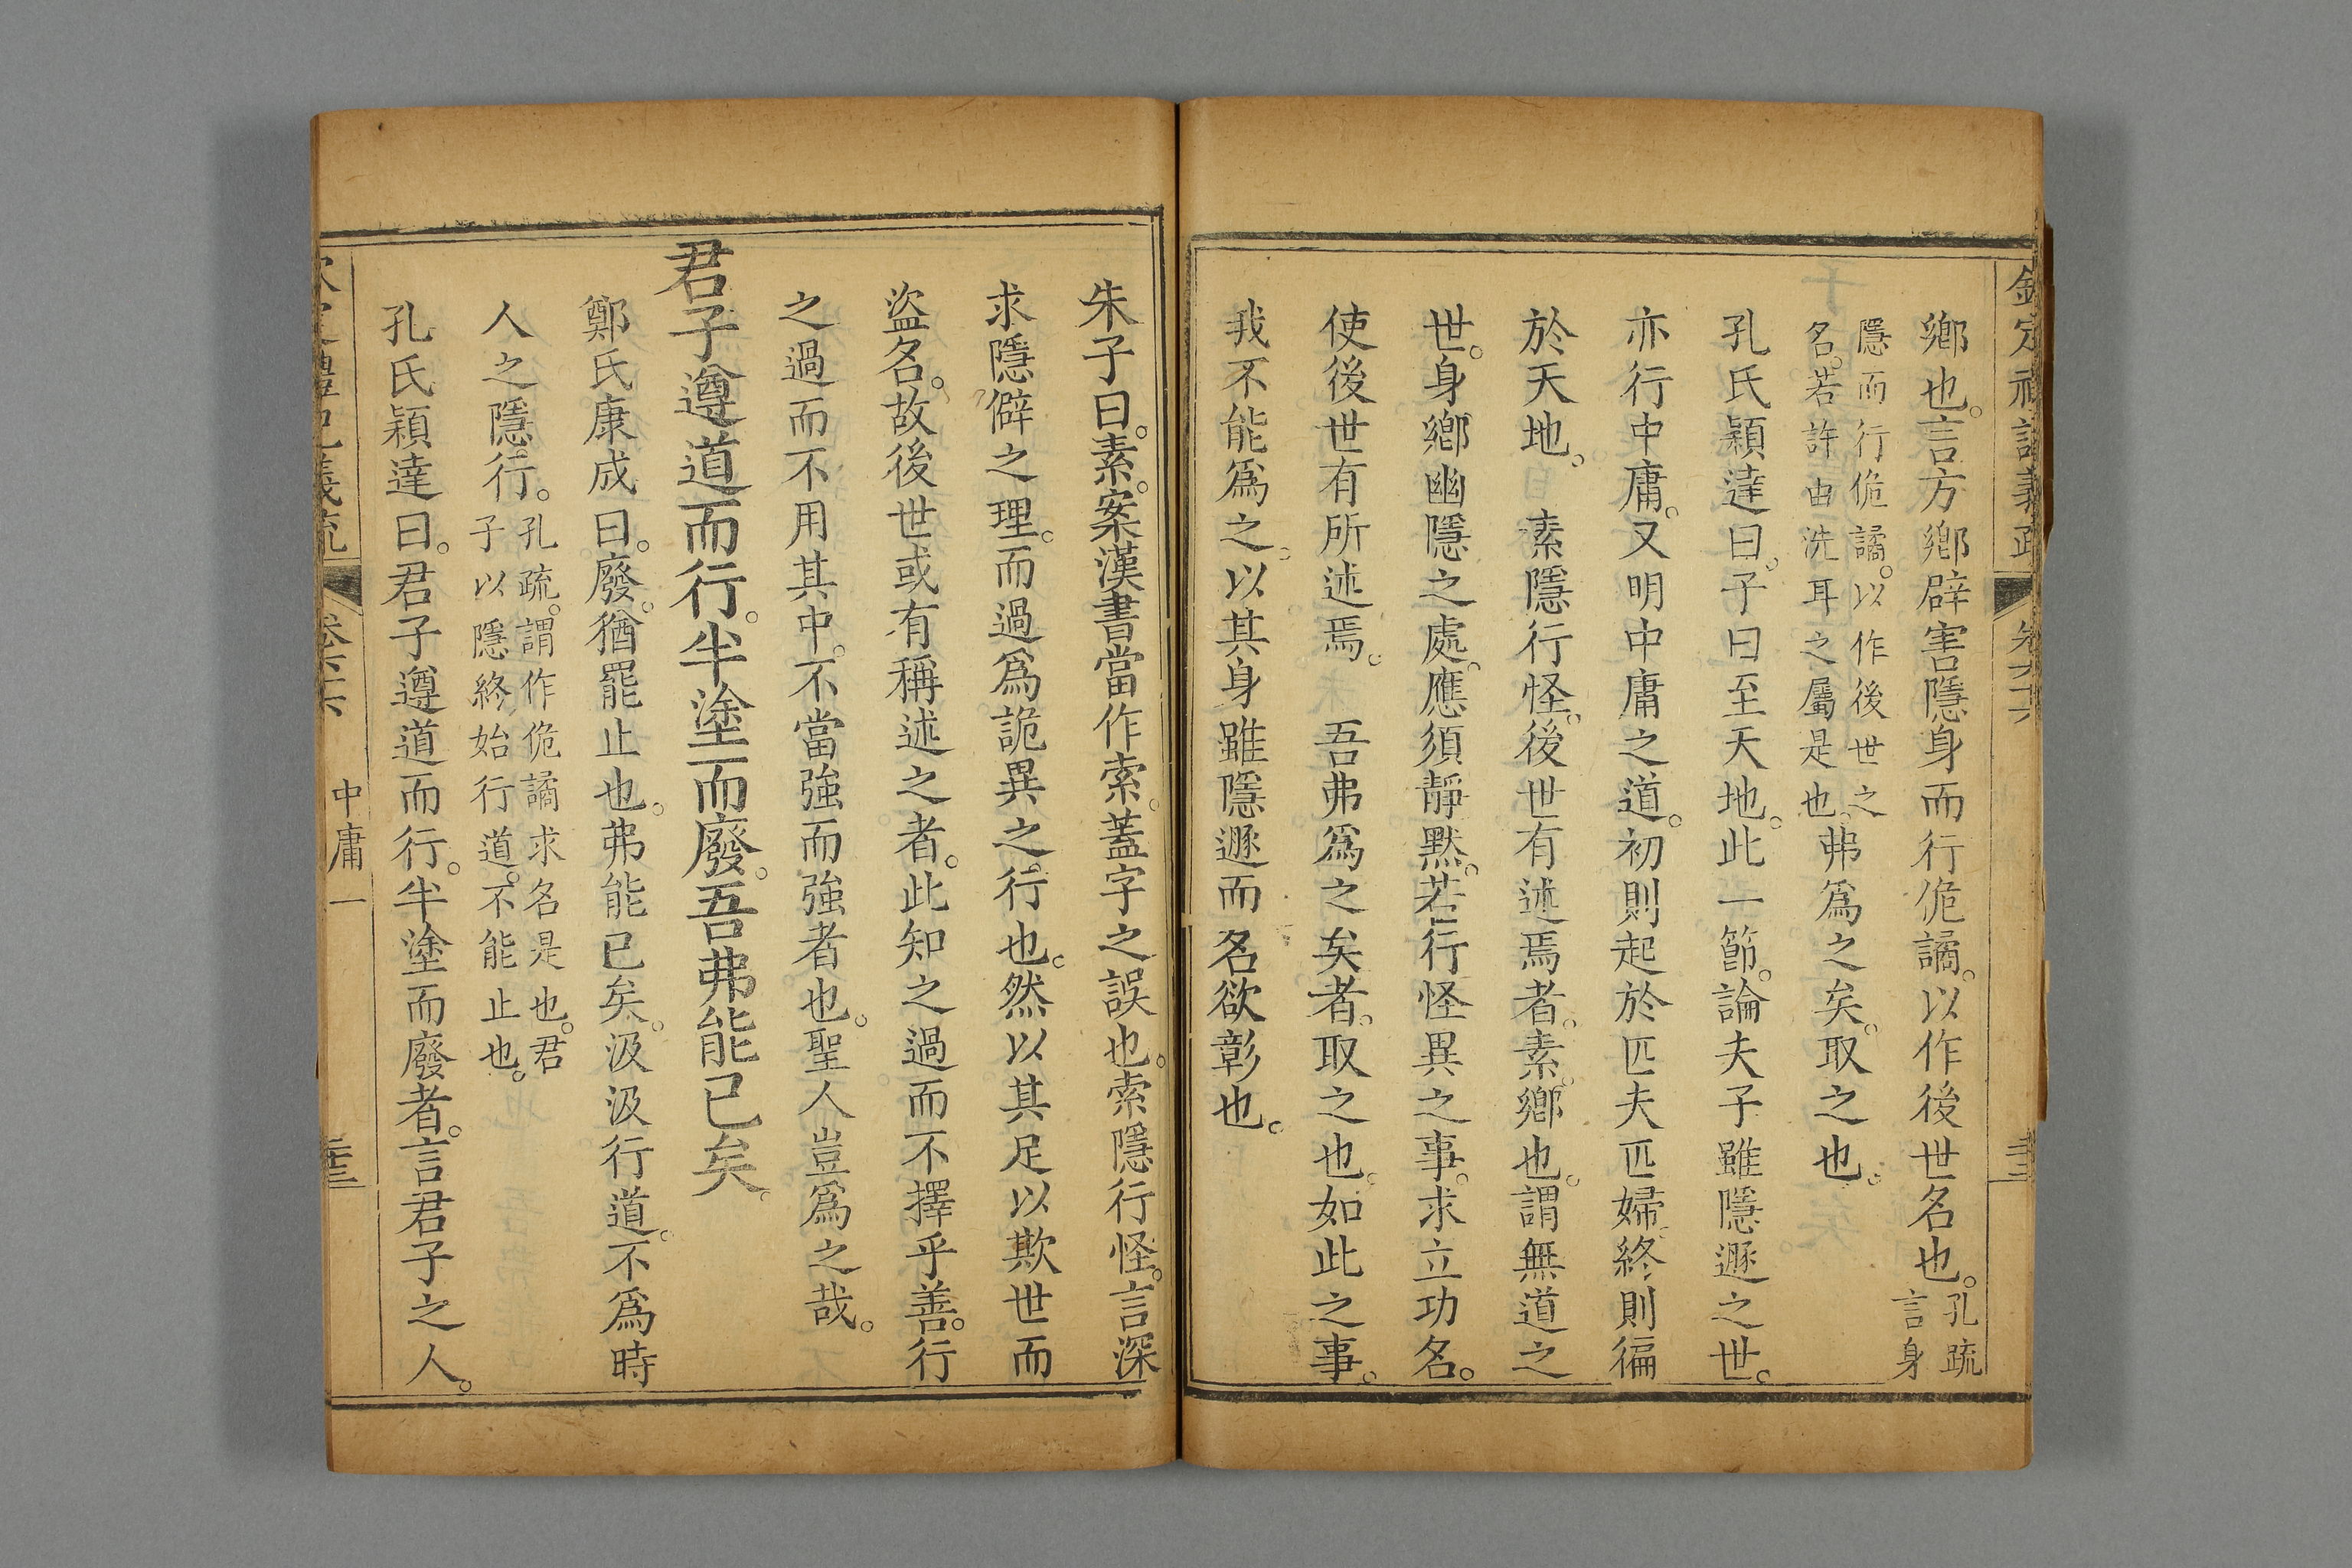 鄉也。言方鄉辟害隱身而行佹譎。以作後世名也。孔疏
言身
隱而行佹譎。以作後世之
名。若許由洗耳之屬是也。弗爲之矣。取之也。
孔氏穎達曰。子曰至天地。此一節。論夫子雖隱遯之世。
亦行中庸。又明中庸之道。初則起於匹夫匹婦。終則徧
於天地。　素隱行怪。後世有述焉者。素。鄉也。謂無道之
世。身鄉幽隱之處。應須靜默。若行怪異之事。求立功名。
使後世有所述焉。　吾弗爲之矣者。取之也。如此之事。
我不能爲之。以其身雖隱遯而名欲彰也。
朱子曰。素。案漢書當作索。蓋字之誤也。索隱行怪。言深
求隱僻之理。而過爲詭異之行也。然以其足以欺世而
盜名。故後世或有稱述之者。此知之過而不擇乎善。行
之過而不用其中。不當強而強者也。聖人豈爲之哉。
君子遵道而行。半塗而廢。吾弗能已矣。
鄭氏康成曰。廢。猶罷止也。弗能已矣。汲汲行道。不爲時
人之隱行。孔疏。謂作佹譎求名是也。君
子以隱終始行道。不能止也。
孔氏穎達曰。君子遵道而行。半塗而廢者。言君子之人。
中庸一